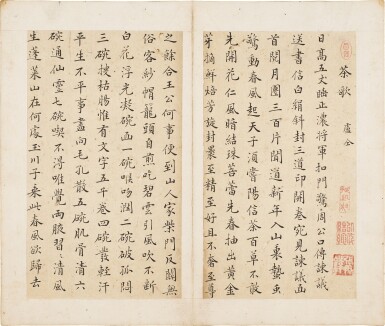 茶歌　盧仝
日高五丈睡正濃將軍扣門驚周公口傳諫議
送書信白絹斜封三道印開卷宛見諫議面
首閱月團三百片聞道新年入山裏蟄虫
驚動春風起天子須嘗陽羡茶百草不敢
先開花仁風暗結珠蓓蕾先春抽出黃金
芽摘鮮焙芳旋封裹至精至好且不奢至尊
之餘合王公何事便到山人家柴門反關無
俗客紗帽籠頭自煎吃碧雲引風吹不斷
白花浮光凝碗面一碗喉吻潤二碗破孤悶
三碗搜枯腸惟有文字五千卷四碗發輕汗
平生不平事盡向毛孔散五碗肌骨清六
碗通仙靈七碗喫不得唯覺兩腋習習清風
生蓬萊山在何處玉川子乘此春風欲歸去